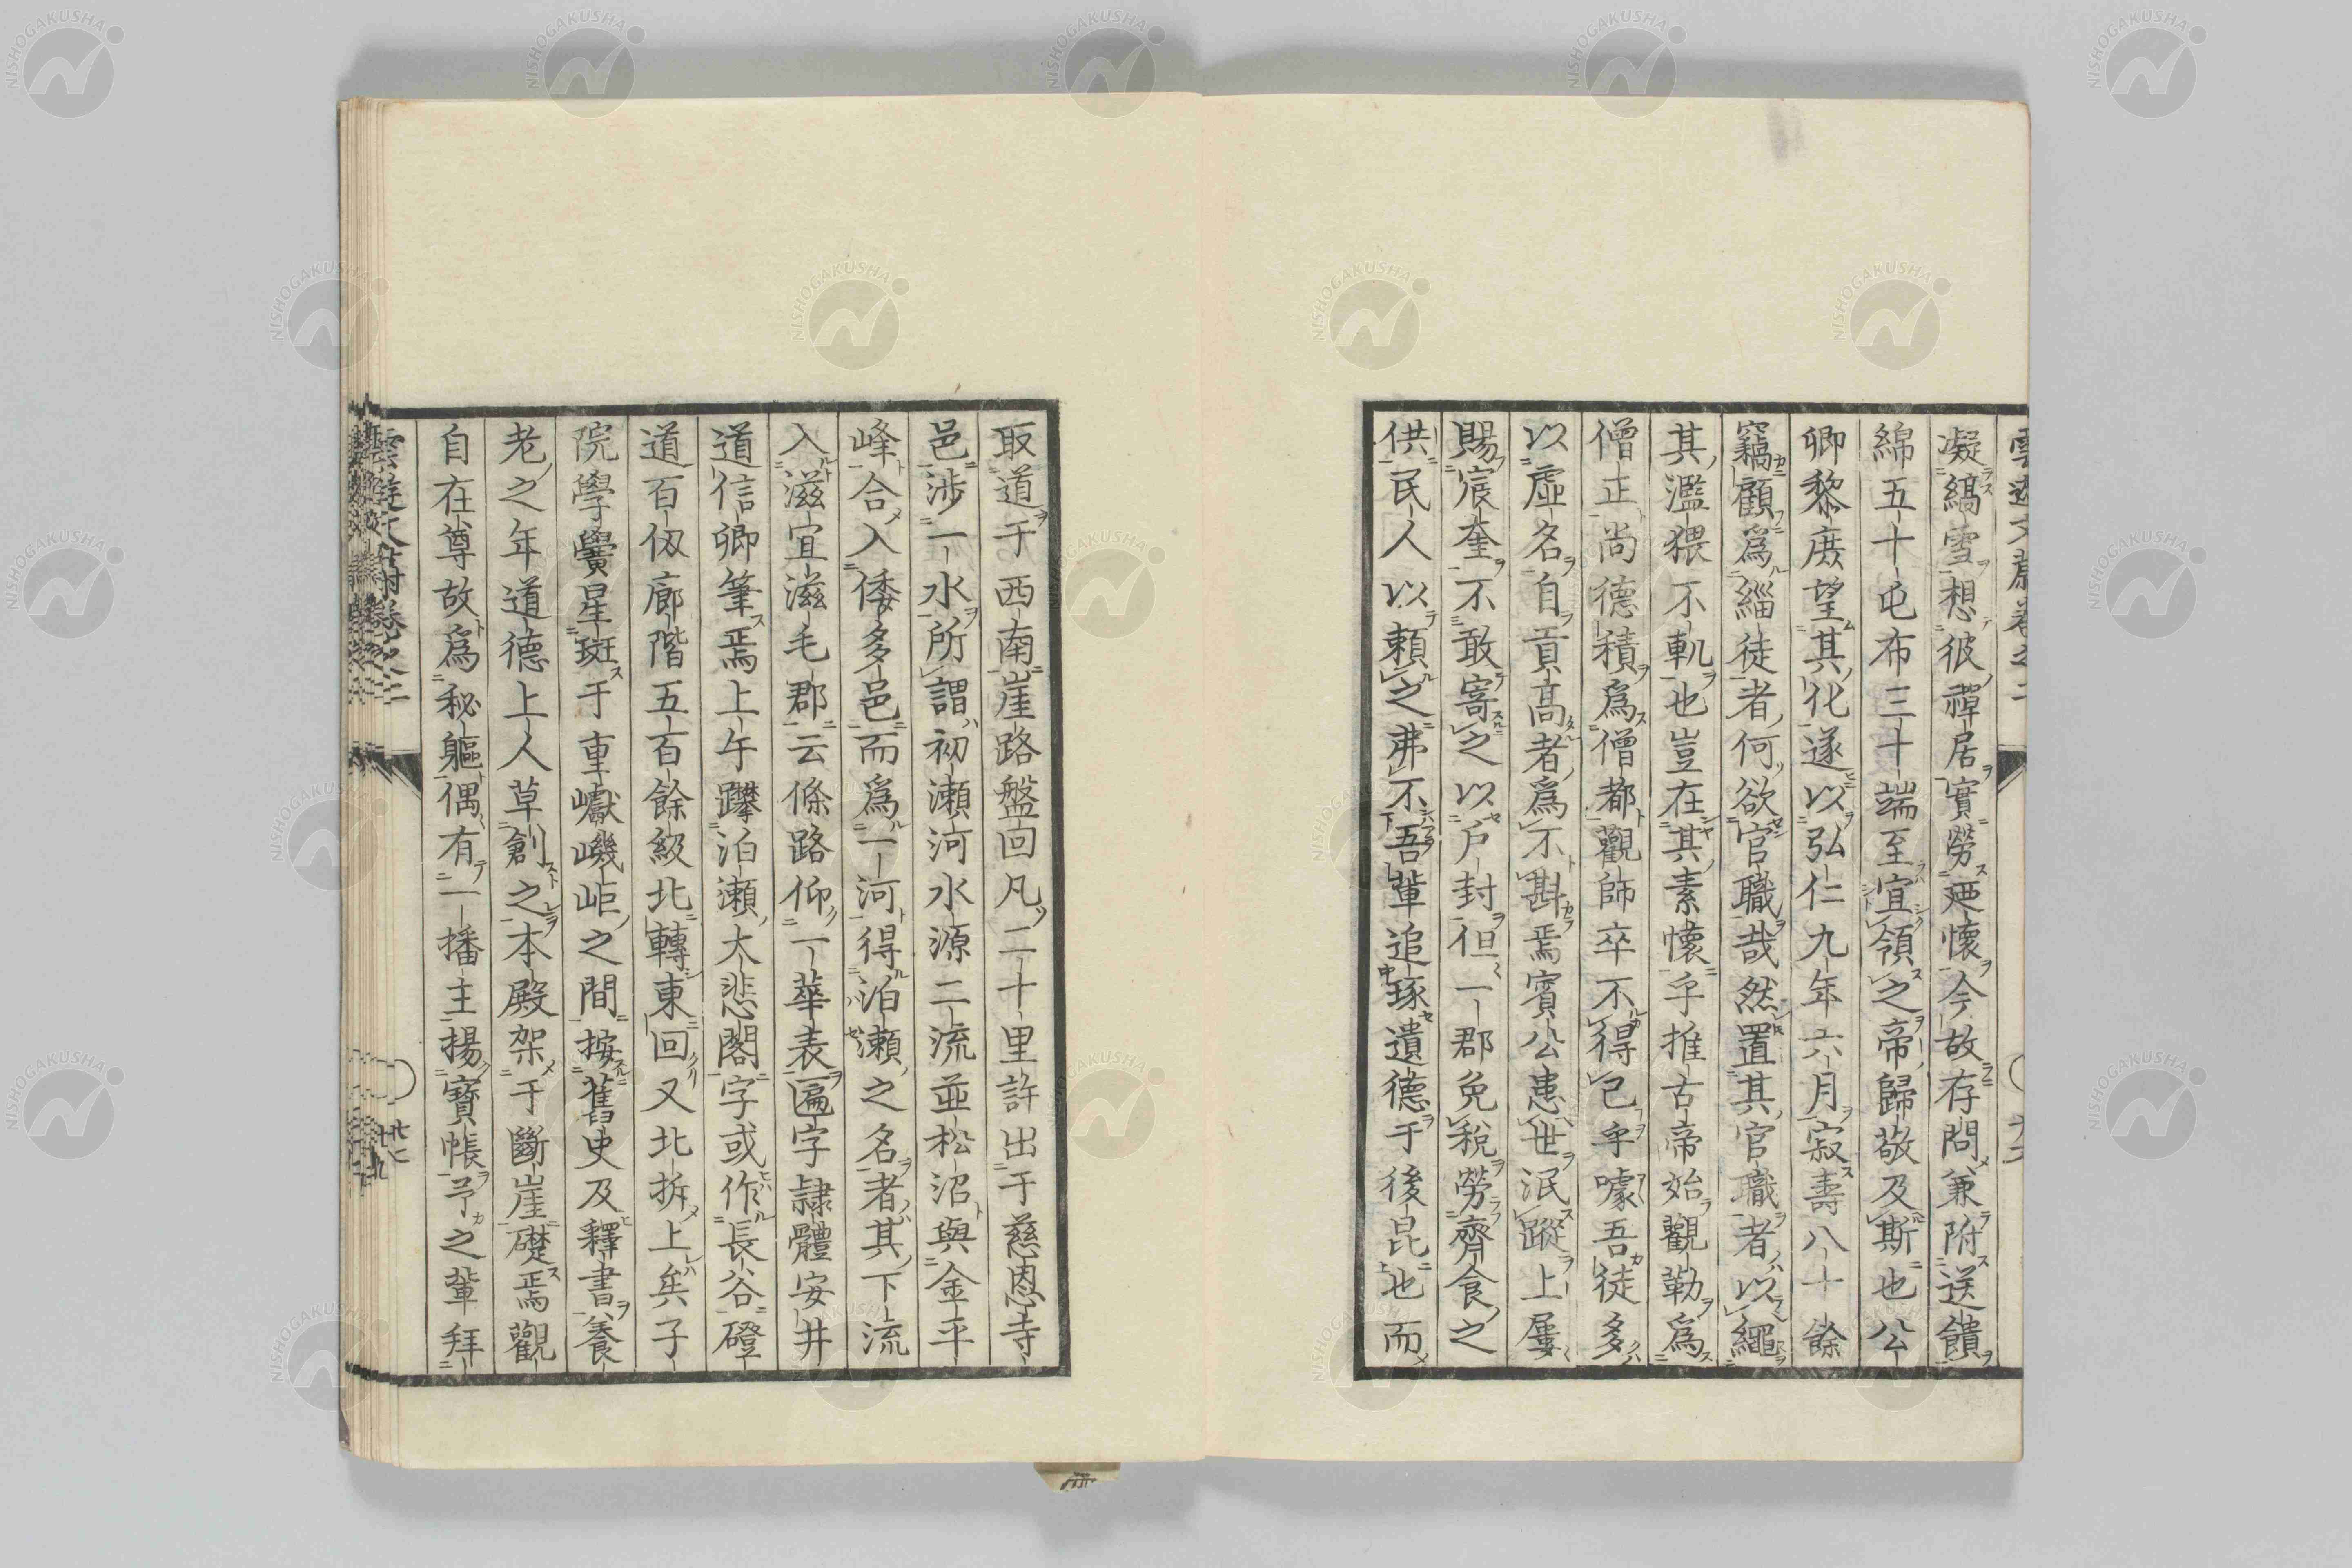 凝縞雪想彼禪居實勞廼懷今故存問兼附送饋
綿五十屯布三十端至宜領之帝歸敬及斯也公
卿黎庶望其化遂以弘仁九年六月寂壽八十餘
竊顧爲緇徒者何欲官職哉然置其官職者以繩
其濫猥不軌也豈在其素懷乎推古帝始觀勒爲
僧正尚德積爲僧都觀師卒不得已乎噱吾徒多
以虛名自貢高者爲不斟焉賓公恚世泯蹤上屢
賜宸奎不敢寄之以戶封但一郡免稅勞齊食之
供民人以賴之弗不吾輩追琢遺德于後昆也而
取道于西南崖路盤回凡二十里許出于慈恩寺
邑涉一水所謂初瀬河水源二流並松沼與金平
峰合入倭多邑而爲一河得泊瀬之名者其下流
入滋宜滋毛郡云條路仰一華表匾字隷體安井
道信卿筆焉上午躋泊瀬大悲閣字或作長谷磴
道百仭廊階五百餘級北轉東回又北折上矣子
院學黌星斑于重巘嶬岠之間按舊史及釋書養
老之年道德上人草創之本殿架于斷崖礎焉觀
自在尊故爲秘軀偶有一播主揚寶帳予之輩拜